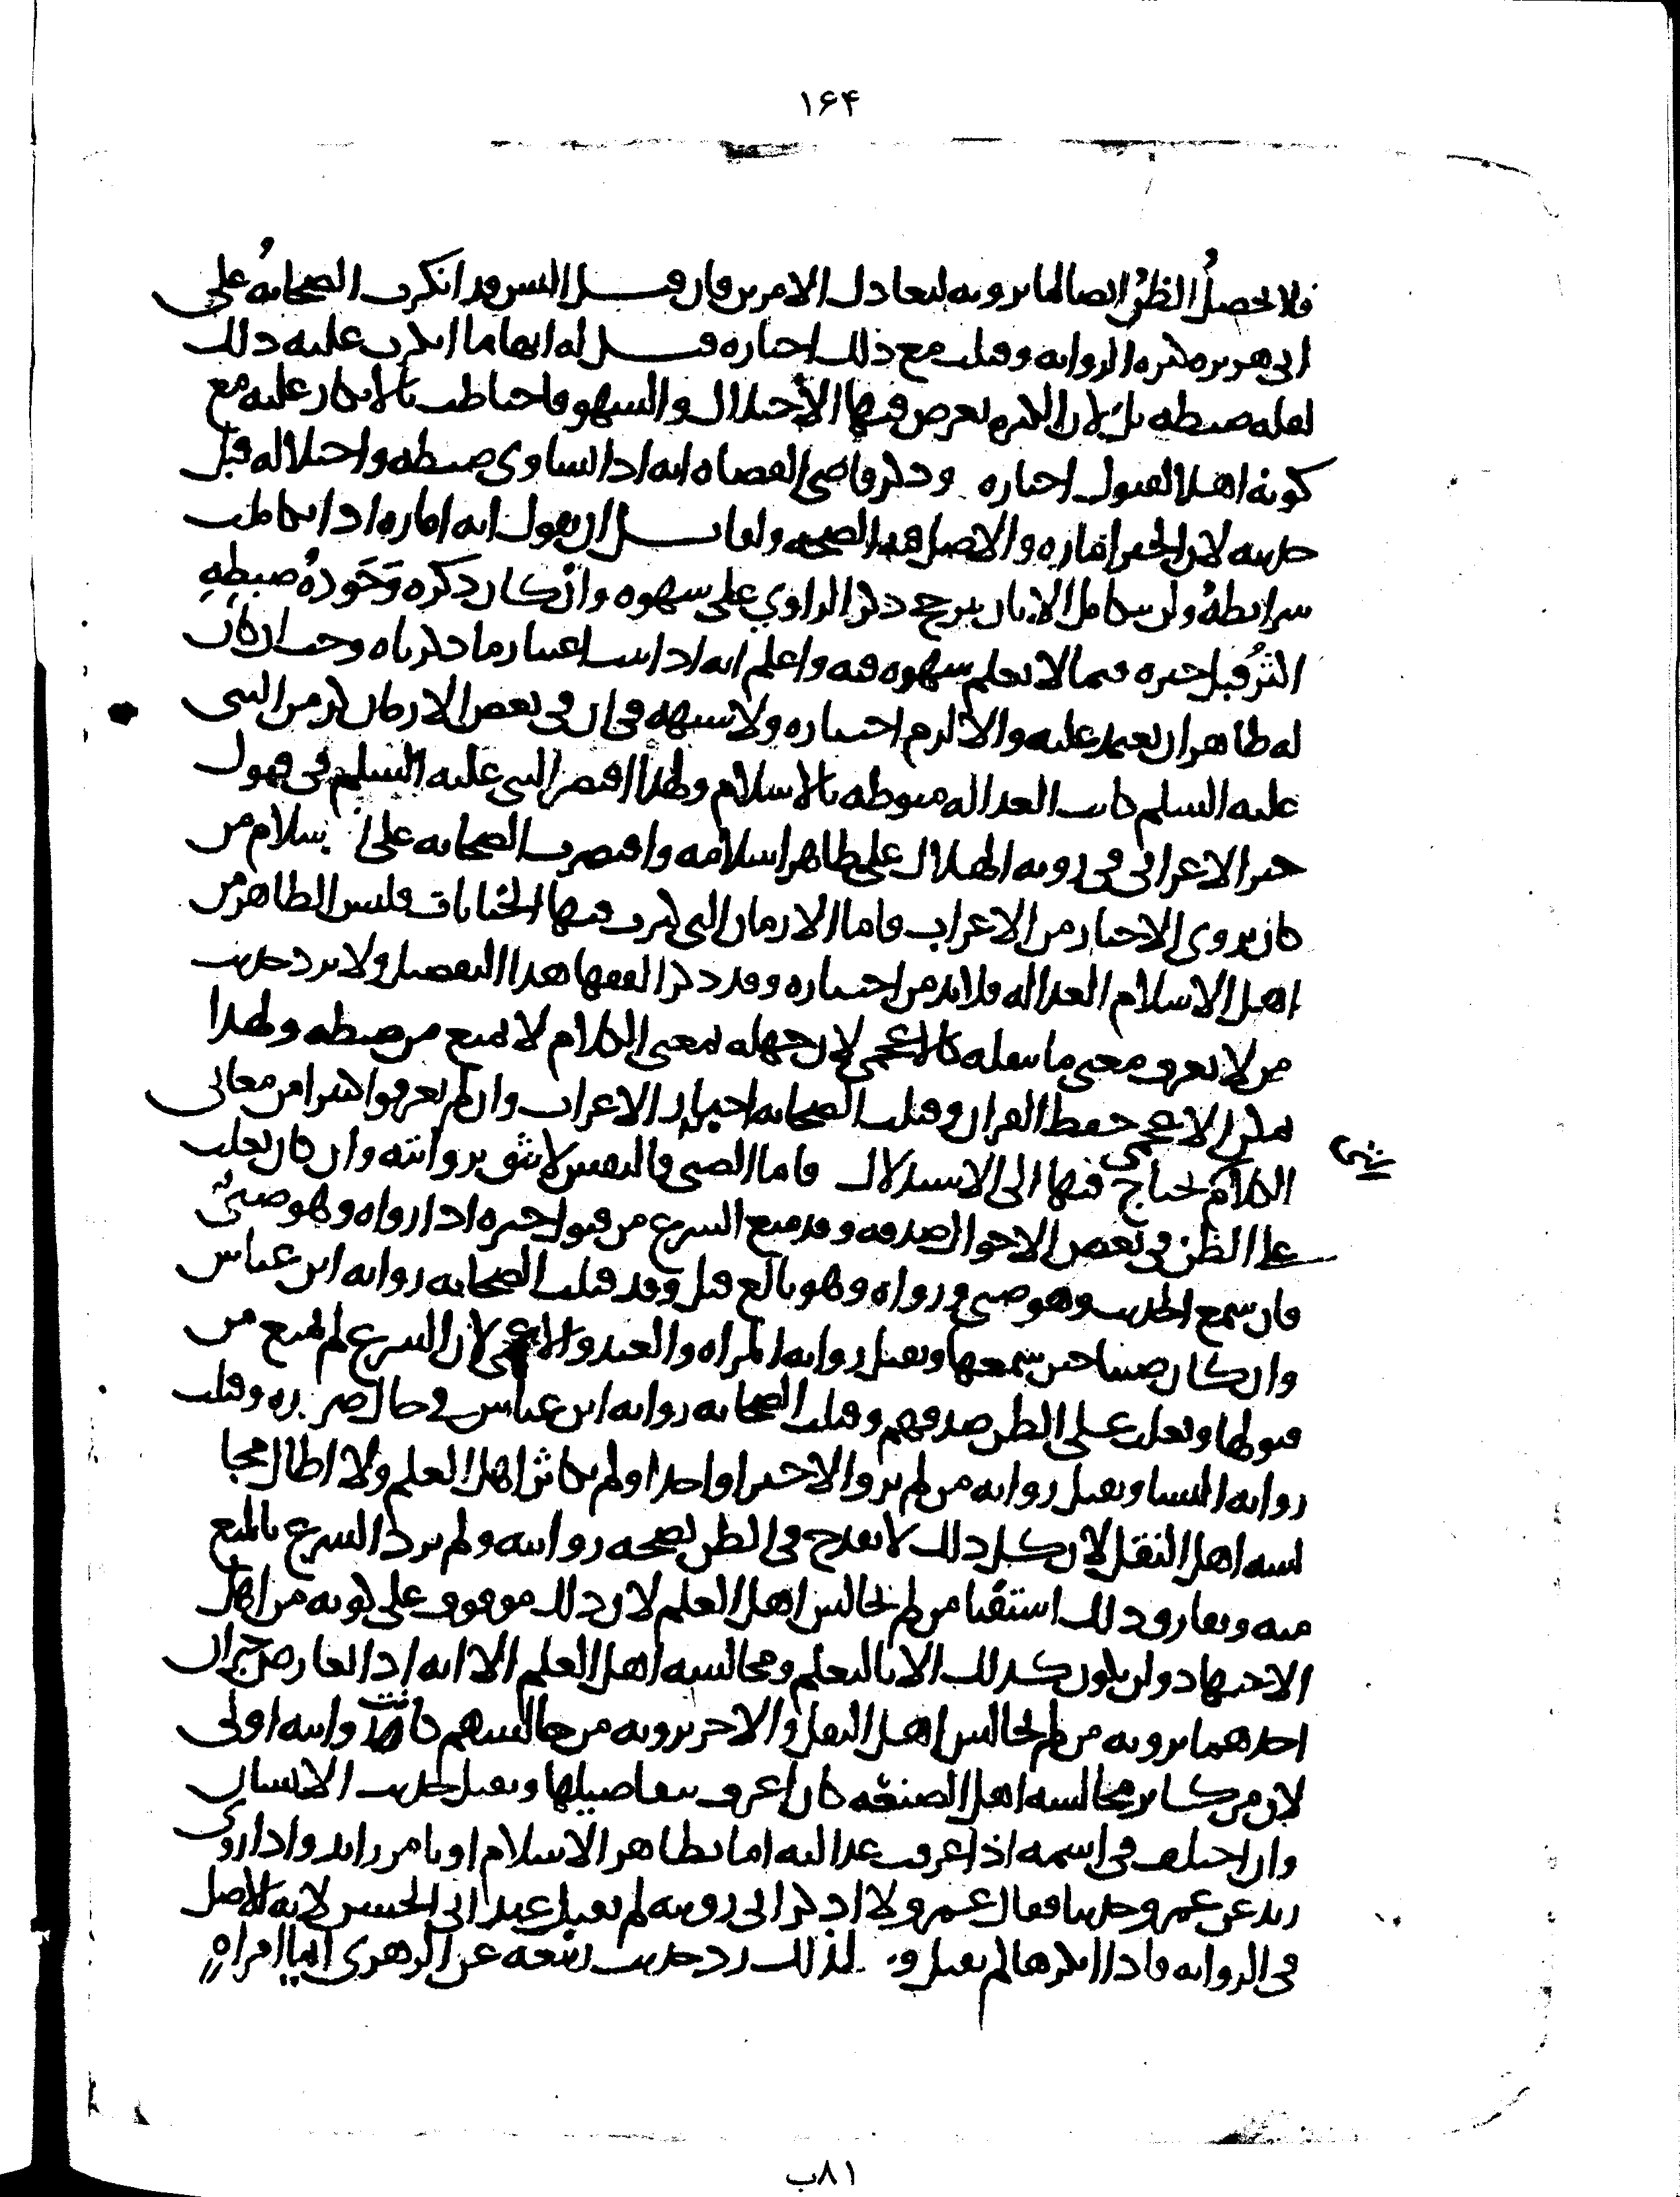 ۱۶۴
فلا يحصل الظن ايضا لما يرويه لتعادل الامرين فان قيل اليس قد انكرت الصحابة على
ابي هريرة كثرة الرواية وقبلت مع ذلك اخباره قيل له انها ما انكرت عليه ذلك
لقلة ضبطه بل لان الكثرة تعرض فيها الاختلال والسهو فاحتاطت بالانكار عليه مع
كونه اهلا لقبول اخباره وذكر قاضي القضاه انه اذا تساوى ضبطه واختلاله قبل
حديثه لان الخبر اماره والاصل فيه الصحه ولقائل ان يقول انه اماره اذا تكاملت
شرائطه ولن تتكامل الا بان يترجح ذكر الراوي على سهوه وان كان ذكره وجودة ضبطه
اكثر قبل خبره فيما لا يعلم سهوه فيه واعلم انه اذا ثبت اعتبار ما ذكرناه وجب ان كان
له ظاهر ان يعتمد عليه والا لزم اختباره ولا شبهه في ان في بعض الازمان كزمن النبي
عليه السلم كانت العداله منوطه بالاسلام ولهذا اقتصر النبي عليه السلم في قبول
خبر الاعرابي في رويه الهلال على ظاهر اسلامه واقتصرت الصحابه على اسلام من
كان يروي الاخبار من الاعراب فاما الازمان التي كثرت فيها الخيانات فليس الظاهر من
اهل الاسلام العداله فلا بد من اختباره وقد ذكر الفقها هذا التفصيل ولا يرد حديث
من لا يعرف معنى ما ينقله كالاعجمي لان جهله بمعنى الكلام لا يمنع من ضبطه ولهذا
يمكن الاعجمي حفظ القران وقبلت الصحابه اخبار الاعراب وان لم يعرفوا كثيرا من معاني
الكلام يحتاج فيها الى الاستدلال فاما الصبي فالنفس لا تثق بروايته وان كان يغلب
على الظن في بعض الاحوال صدقه وقد منع الشرع من قبول خبره اذا رواه وهو صبي
فان سمع الحديث وهو صبي ورواه وهو بالغ قبل وقد قبلت الصحابه روايه ابن عباس
وان كان صبيا حين سمعها وتقبل روايه المراه والعبد والاعمى لان الشرع لم يمنع من
قبولها ويغلب على الظن صدقهم وقبلت الصحابه روايه ابن عباس في حال ضرره وقبلت
روايه النسا وتقبل روايه من لم يرو الا خبرا واحدا ولم يكاثر اهل العلم ولا اطال مجا
لسه اهل النقل لان كل ذلك لا يقدح في الظن لصحه روايته ولم يرد الشرع بالمنع
منه ويفارق ذلك استفتا من لم يجالس اهل العلم لان ذلك موقوف على كونه من اهل
الاجتهاد ولن يكون كذلك الا بالتعلم ومجالسه اهل العلم الا انه اذا تعارض خبران
احدهما يرويه من لم يجالس اهل النقل والاخر يرويه من جالسهم كانت روايته اولى
لان من كاثر مجالسه اهل الصنعه كان اعرف بتفاصيلها ويقبل حديث الانسان
وان اختلف في اسمه اذا عرفت عدالته اما بظاهر الاسلام او بامر زائد واذا روى
زيد عن عمرو حديثا فقال عمرو لا اذكر اني رويته لم يقبل عند ابي الحسن لانه الاصل
في الروايه فاذا انكرها لم تقبل ولذلك رد حديث ربيعه عن الزهري ايما امراه
۸۱ب